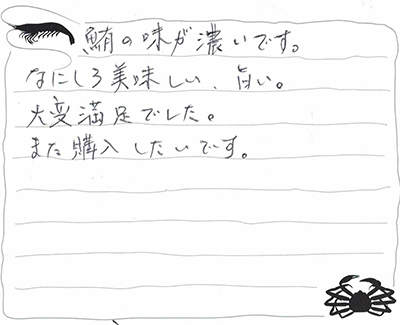 鮪の味が濃いです。
なにしろ美味しい、旨い。
大変満足でした。
また購入したいです。